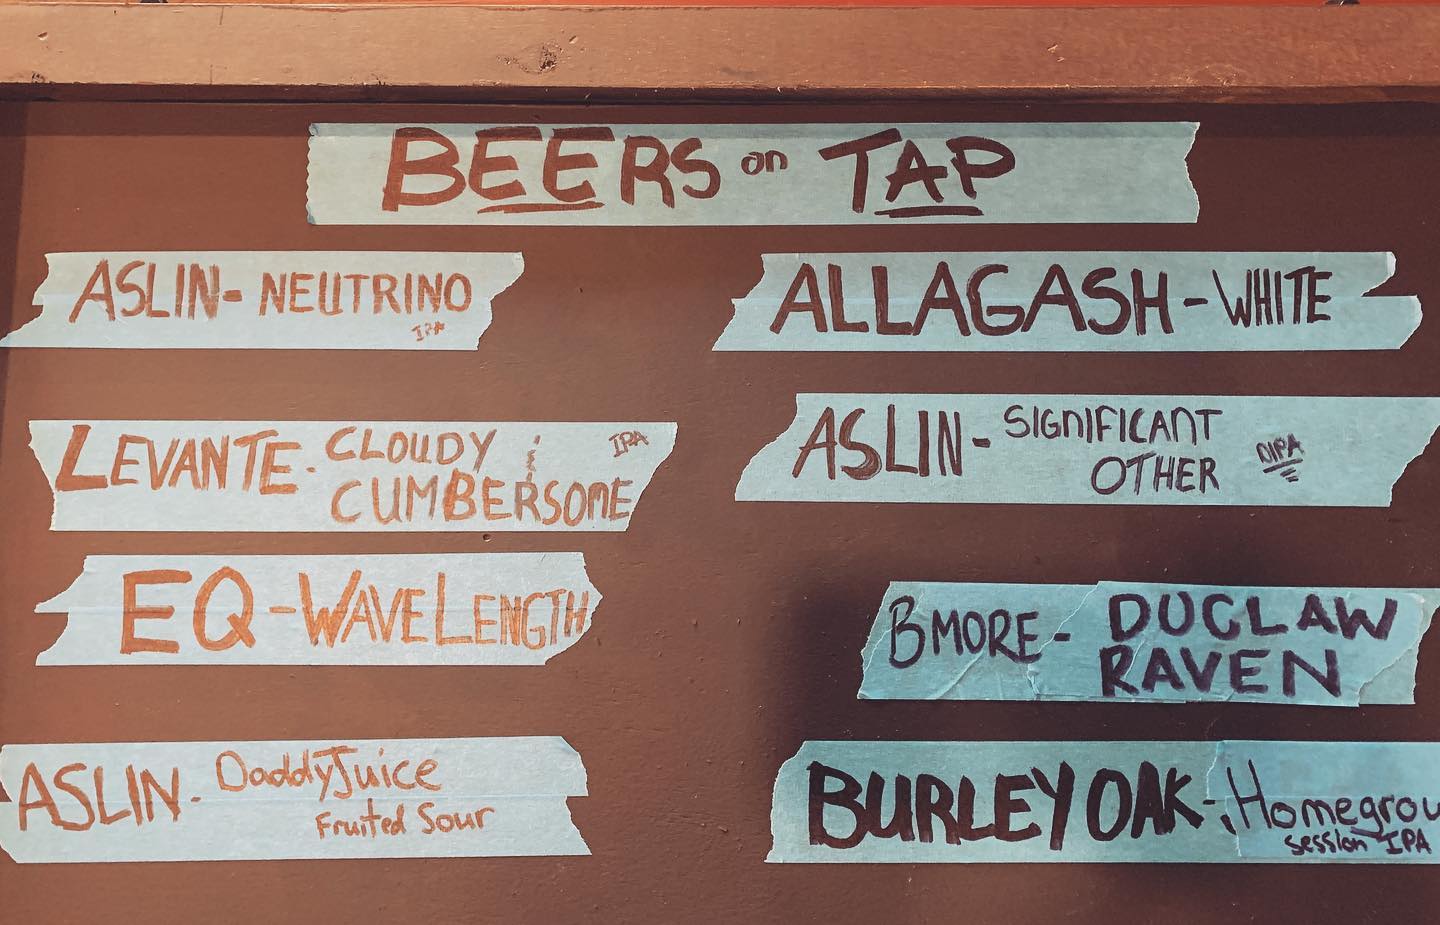 BEERS on TAP
ASLIN- NEUTRINO
IPA
LEVANTE- CLOUDY & IPA
CUMBERSOME
EQ-WAVELENGTH
ASLIN- DaddyJuice
Fruited Sour
ALLAGASH-WHITE
ASLIN- SIGNIFICANT
OTHER DIPA
BMORE- DUCLAW
RAVEN
BURLEY OAK- Homegrou
Session IPA